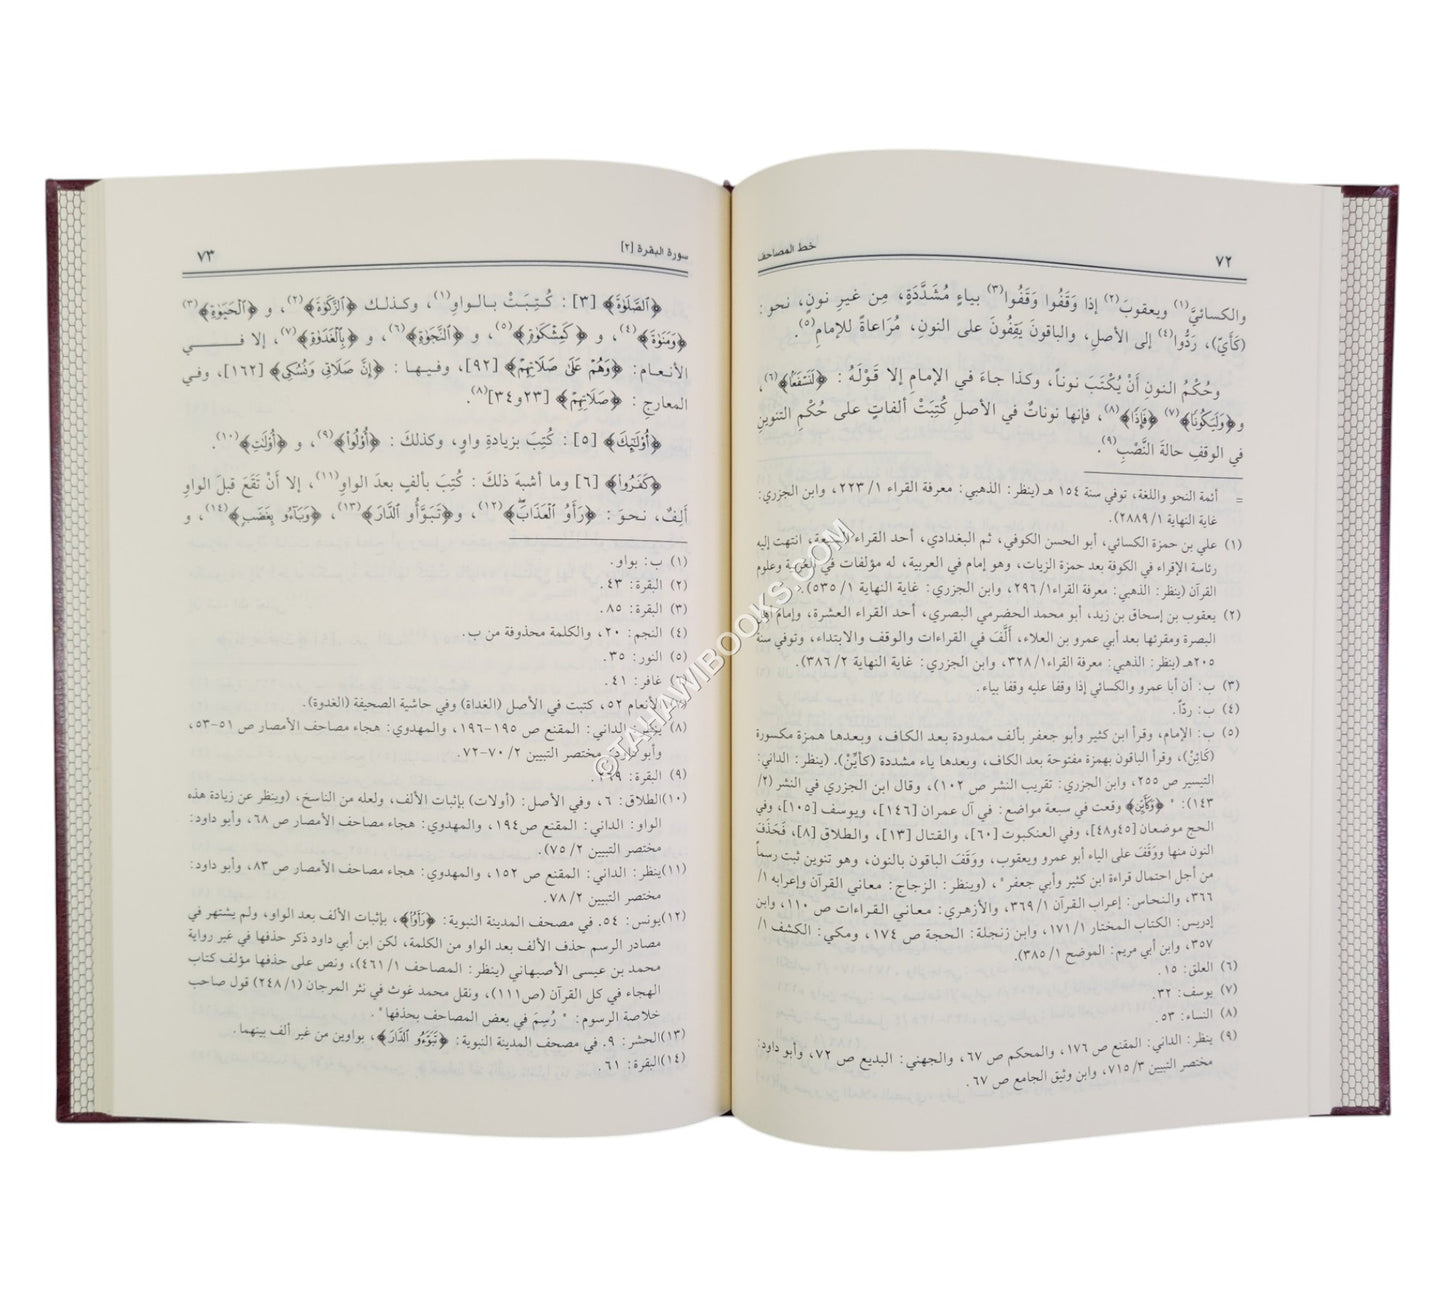 ٧٢
خط المصاحف
والكسائيَّ(١) ويعقوبَ(٢) إذا وَقَفُوا وَقَفُوا(٣) بياءٍ مُشَدَّدَةٍ، مِن غيرِ نونٍ، نحو:
(كَأَيّ)، رَدُّوا(٤) إلى الأصلِ، والباقونَ يَقِفُونَ على النونِ، مُرَاعاةً للإمامِ(٥).
وحُكْمُ النونِ أنْ يُكْتَبَ نوناً، وكذا جاءَ في الإمامِ إلا قَوْلَهُ: ﴿لَنَسْفَعَۢا﴾(٦)،
و﴿وَلَيَكُونٗا﴾(٧) ﴿فَإِذٗا﴾(٨)، فإنها نوناتٌ في الأصلِ كُتِبَتْ ألفاتٍ على حُكْمِ التنوينِ
في الوقفِ حالةَ النَّصْبِ(٩).
= أئمة النحو واللغة، توفي سنة ١٥٤ هـ (ينظر: الذهبي: معرفة القراء ١/ ٢٢٣، وابن الجزري:
غاية النهاية ١/ ٢٨٨٩).
(١) علي بن حمزة الكسائي، أبو الحسن الكوفي، ثم البغدادي، أحد القراء السبعة، انتهت إليه
رئاسة الإقراء في الكوفة بعد حمزة الزيات، وهو إمام في العربية، له مؤلفات في العربية وعلوم
القرآن (ينظر: الذهبي: معرفة القراء١/ ٢٩٦، وابن الجزري: غاية النهاية ١/ ٥٣٥).
(٢) يعقوب بن إسحاق بن زيد، أبو محمد الحضرمي البصري، أحد القراء العشرة، وإمام أهل
البصرة ومقرئها بعد أبي عمرو بن العلاء، أَلَّفَ في القراءات والوقف والابتداء، وتوفي سنة
٢٠٥هـ (ينظر: الذهبي: معرفة القراء١/ ٣٢٨، وابن الجزري: غاية النهاية ٢/ ٣٨٦).
(٣) ب: أن أبا عمرو والكسائي إذا وقفا عليه وقفا بياء.
(٤) ب: ردّاً.
(٥) ب: الإمام، وقرأ ابن كثير وأبو جعفر بألف ممدودة بعد الكاف، وبعدها همزة مكسورة
(كَائِنْ)، وقرأ الباقون بهمزة مفتوحة بعد الكاف، وبعدها ياء مشددة (كأيّنْ). (ينظر: الداني:
التيسير ص ٢٥٥، وابن الجزري: تقريب النشر ص ١٠٢)، وقال ابن الجزري في النشر (٢/
١٤٣): " ﴿وَكَأَيِّن﴾ وقعت في سبعة مواضع: في آل عمران [١٤٦]، ويوسف [١٠٥]، وفي
الحج موضعان [٤٥و٤٨]، وفي العنكبوت [٦٠]، والقتال [١٣]، والطلاق [٨]، فَحَذَفَ
النون منها ووَقَفَ على الياء أبو عمرو ويعقوب، ووَقَفَ الباقون بالنون، وهو تنوين ثبت رسماً
من أجل احتمال قراءة ابن كثير وأبي جعفر"، (وينظر: الزجاج: معاني القرآن وإعرابه ١/
٣٦٦، والنحاس: إعراب القرآن ١/ ٣٦٩، والأزهري: معاني القراءات ص ١١٠، وابن
إدريس: الكتاب المختار ١/ ١٧١، وابن زنجلة: الحجة ص ١٧٤، ومكي: الكشف ١/
٣٥٧، وابن أبي مريم: الموضح ١/ ٣٨٥).
(٦) العلق: ١٥.
(٧) يوسف: ٣٢.
(٨) النساء: ٥٣.
(٩) ينظر: الداني: المقنع ص ١٧٦، والمحكم ص ٦٧، والجهني: البديع ص ٧٢، وأبو داود:
مختصر التبيين ٣/ ٧١٥، وابن وثيق الجامع ص ٦٧.
سورة البقرة [٢]
٧٣
﴿الصَّلَوٰةَ﴾ [٣]: كُتِبَتْ بالواوِ(١)، وكذلك ﴿الزَّكَوٰةَ﴾(٢)، و ﴿الْحَيَوٰةِ﴾(٣)
﴿وَمَنَوٰةَ﴾(٤)، و ﴿كَمِشْكَوٰةٖ﴾(٥)، و ﴿النَّجَوٰةِ﴾(٦)، و ﴿بِالْغَدَوٰةِ﴾(٧)، إلا في
الأنعامِ: ﴿وَهُمْ عَلَىٰ صَلَاتِهِمْ﴾ [٩٢]، وفيها: ﴿إِنَّ صَلَاتِي وَنُسُكِي﴾ [١٦٢]، وفي
المعارجِ: ﴿صَلَاتِهِمْ﴾ [٢٣و٣٤](٨).
﴿أُوْلَٰٓئِكَ﴾ [٥]: كُتِبَ بزيادةِ واوٍ، وكذلكَ: ﴿أُوْلُواْ﴾(٩)، و ﴿أُوْلَٰتِ﴾(١٠).
﴿كَفَرُواْ﴾ [٦] وما أشبهَ ذلكَ: كُتِبَ بألفٍ بعدَ الواوِ(١١)، إلا أنْ تَقَعَ قبلَ الواوِ
أَلِفٌ، نحوَ: ﴿رَأَوُ الْعَذَابَۖ﴾(١٢)، و﴿تَبَوَّأُو الدَّارَ﴾(١٣)، ﴿وَبَآءُو بِغَضَبٖ﴾(١٤)، و
(١) ب: بواو.
(٢) البقرة: ٤٣.
(٣) البقرة: ٨٥.
(٤) النجم: ٢٠، والكلمة محذوفة من ب.
(٥) النور: ٣٥.
(٦) غافر: ٤١.
(٧) الأنعام ٥٢، كتبت في الأصل (الغداة) وفي حاشية الصحيفة (الغدوة).
(٨) ينظر: الداني: المقنع ص ١٩٥-١٩٦، والمهدوي: هجاء مصاحف الأمصار ص ٥١-٥٣،
وأبو داود: مختصر التبيين ٢/ ٧٠-٧٢.
(٩) البقرة: ٢٦٩.
(١٠)الطلاق: ٦، وفي الأصل: (أولات) بإثبات الألف، ولعله من الناسخ، (وينظر عن زيادة هذه
الواو: الداني: المقنع ص١٩٤، والمهدوي: هجاء مصاحف الأمصار ص ٦٨، وأبو داود:
مختصر التبيين ٢/ ٧٥).
(١١)ينظر: الداني: المقنع ص ١٥٢، والمهدوي: هجاء مصاحف الأمصار ص ٨٣، وأبو داود:
مختصر التبيين ٢/ ٧٨.
(١٢)يونس: ٥٤. في مصحف المدينة النبوية: ﴿رَأَوُاْ﴾، بإثبات الألف بعد الواو، ولم يشتهر في
مصادر الرسم حذف الألف بعد الواو من الكلمة، لكن ابن أبي داود ذكر حذفها في غير رواية
محمد بن عيسى الأصبهاني (ينظر: المصاحف ١/ ٤٦١)، ونص على حذفها مؤلف كتاب
الهجاء في كل القرآن (ص١١١)، ونقل محمد غوث في نثر المرجان (١/ ٢٤٨) قول صاحب
خلاصة الرسوم: " رُسِمَ في بعض المصاحف بحذفها".
(١٣)الحشر: ٩. في مصحف المدينة النبوية: ﴿تَبَوَّءُو الدَّارَ﴾، بواوين من غير ألف بينهما.
(١٤)البقرة: ٦١.
©TAHAWIBOOKS.COM